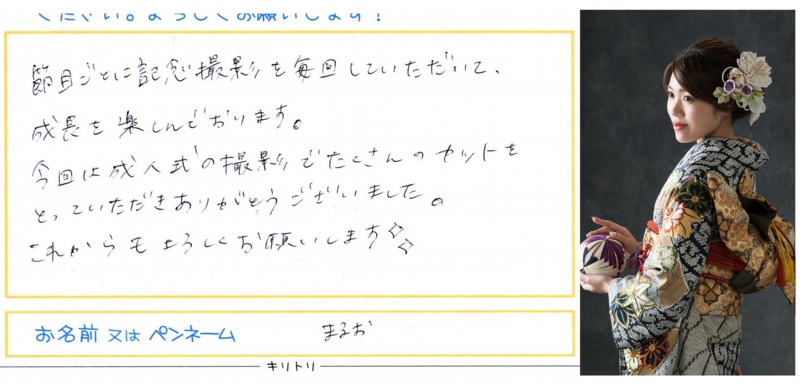 ください。よろしくお願いします!
節目ごとに記念撮影を毎回していただいて、
成長を楽しんでおります。
今回は成人式の撮影でたくさんのカットを
とっていただきありがとうございました。
これからもよろしくお願いします
お名前 又は ペンネーム
まるお
キリトリ